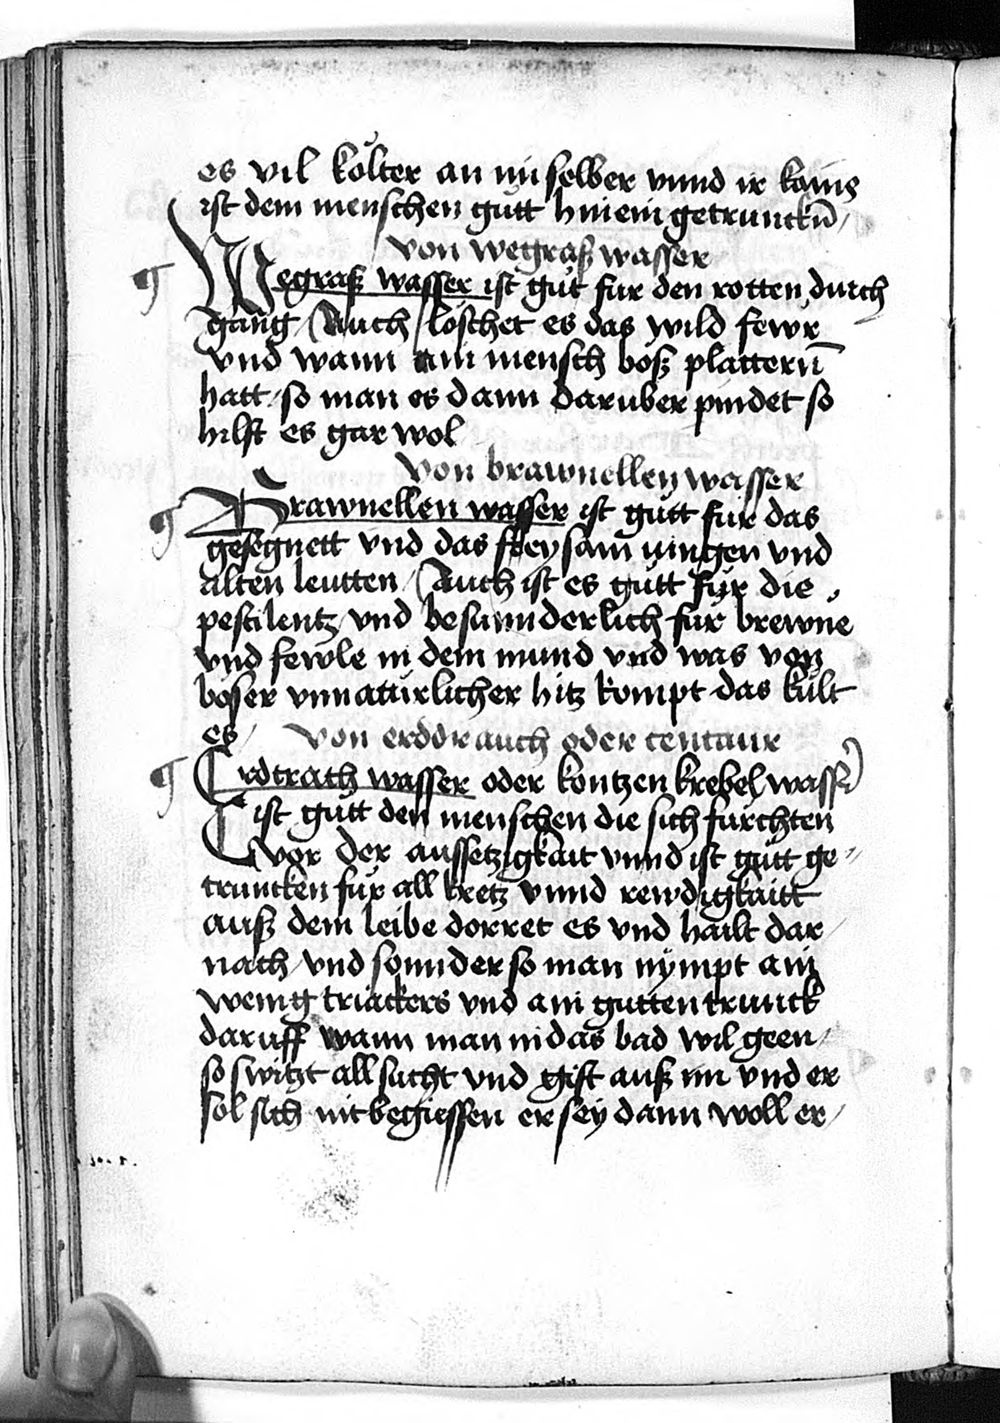 es vil költer an im selber vnnd ir kains
ist dem menschen gutt hinein getrunckn̄
von wegraß wasser
¶ Wegraß wasser ist gut fur den rotten durch
gang / Auch löschet es das wild fewr
vnd wann ain mensch boß plattern̄
hatt / so man es dann daruber pindet so
hilft es gar wol
von brawnellen wasser
¶ Brawnellen wasser ist gutt fur das
gesegnett vnd das freysam iungen vnd
alten leutten / Auch ist es gutt fur die
pestilentz / vnd besunnderlich fur brewne
vnd fewle in dem mund vnd was von
boser vnnaturlicher hitz kompt das kult
es / von erddrauch oder centaur
¶ Erdtrach wasser oder kontzen krebel wasser
ist gutt den menschen die sich furchten
vor der aussetzigkait vnnd ist gutt ge=
truncken fur all kretz vnnd rewdigkaitt
auß dem leibe dorret es vnd hailt dar /
nach / vnd sonnder so man nympt ain
wenig triackers vnd ain gutten trunck
daruff wann man in das bad wil geen /
so switzt all sucht vnd gift auß im vnd er
sol sich nit begiessen er sey dann woll er /